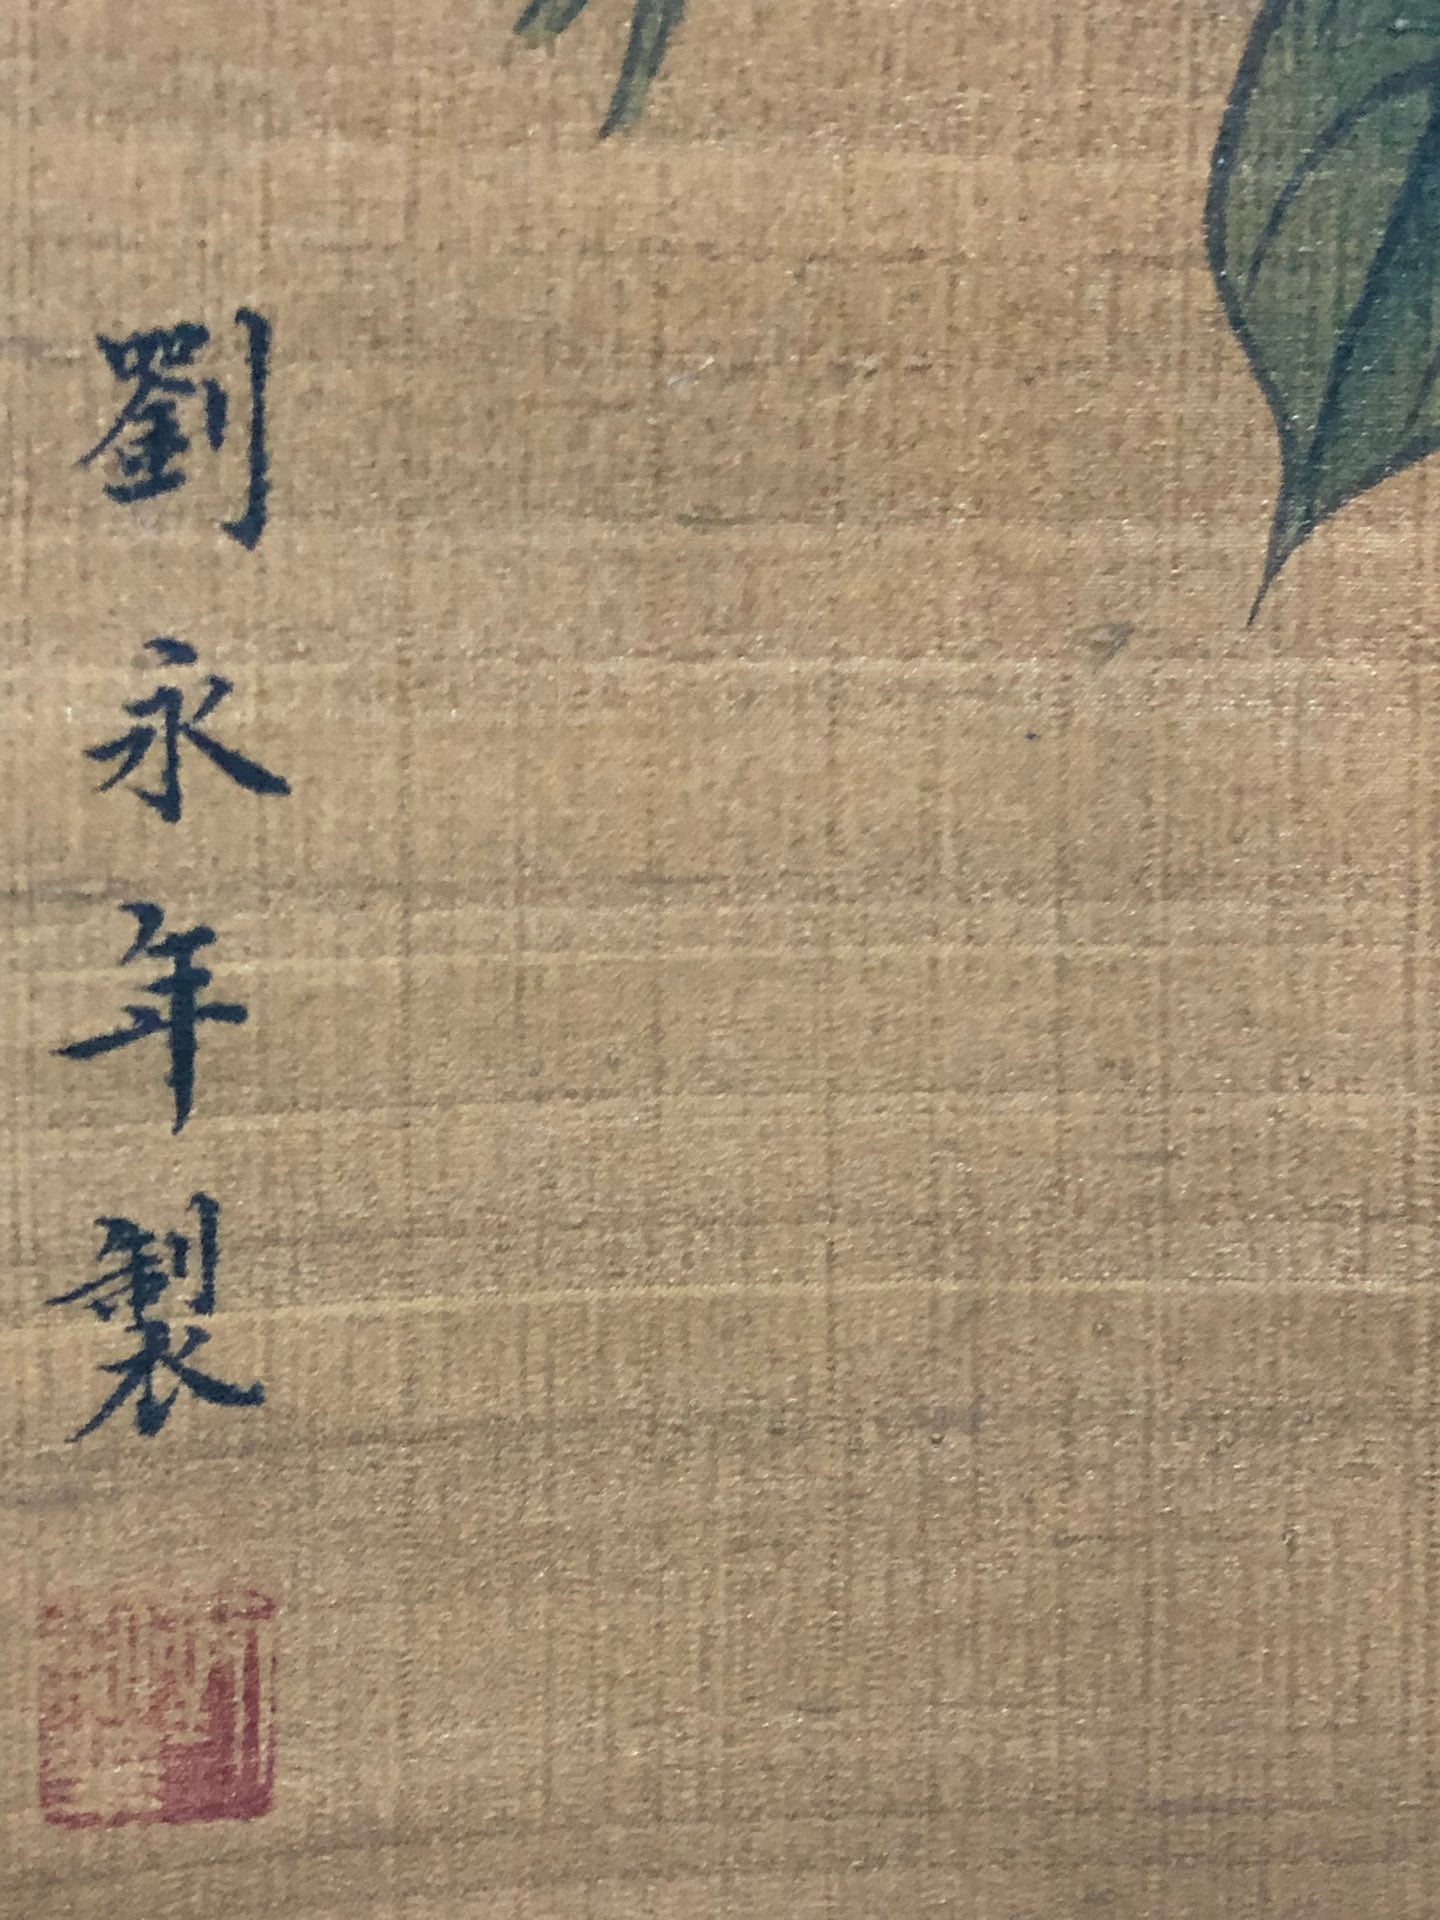 劉永年製